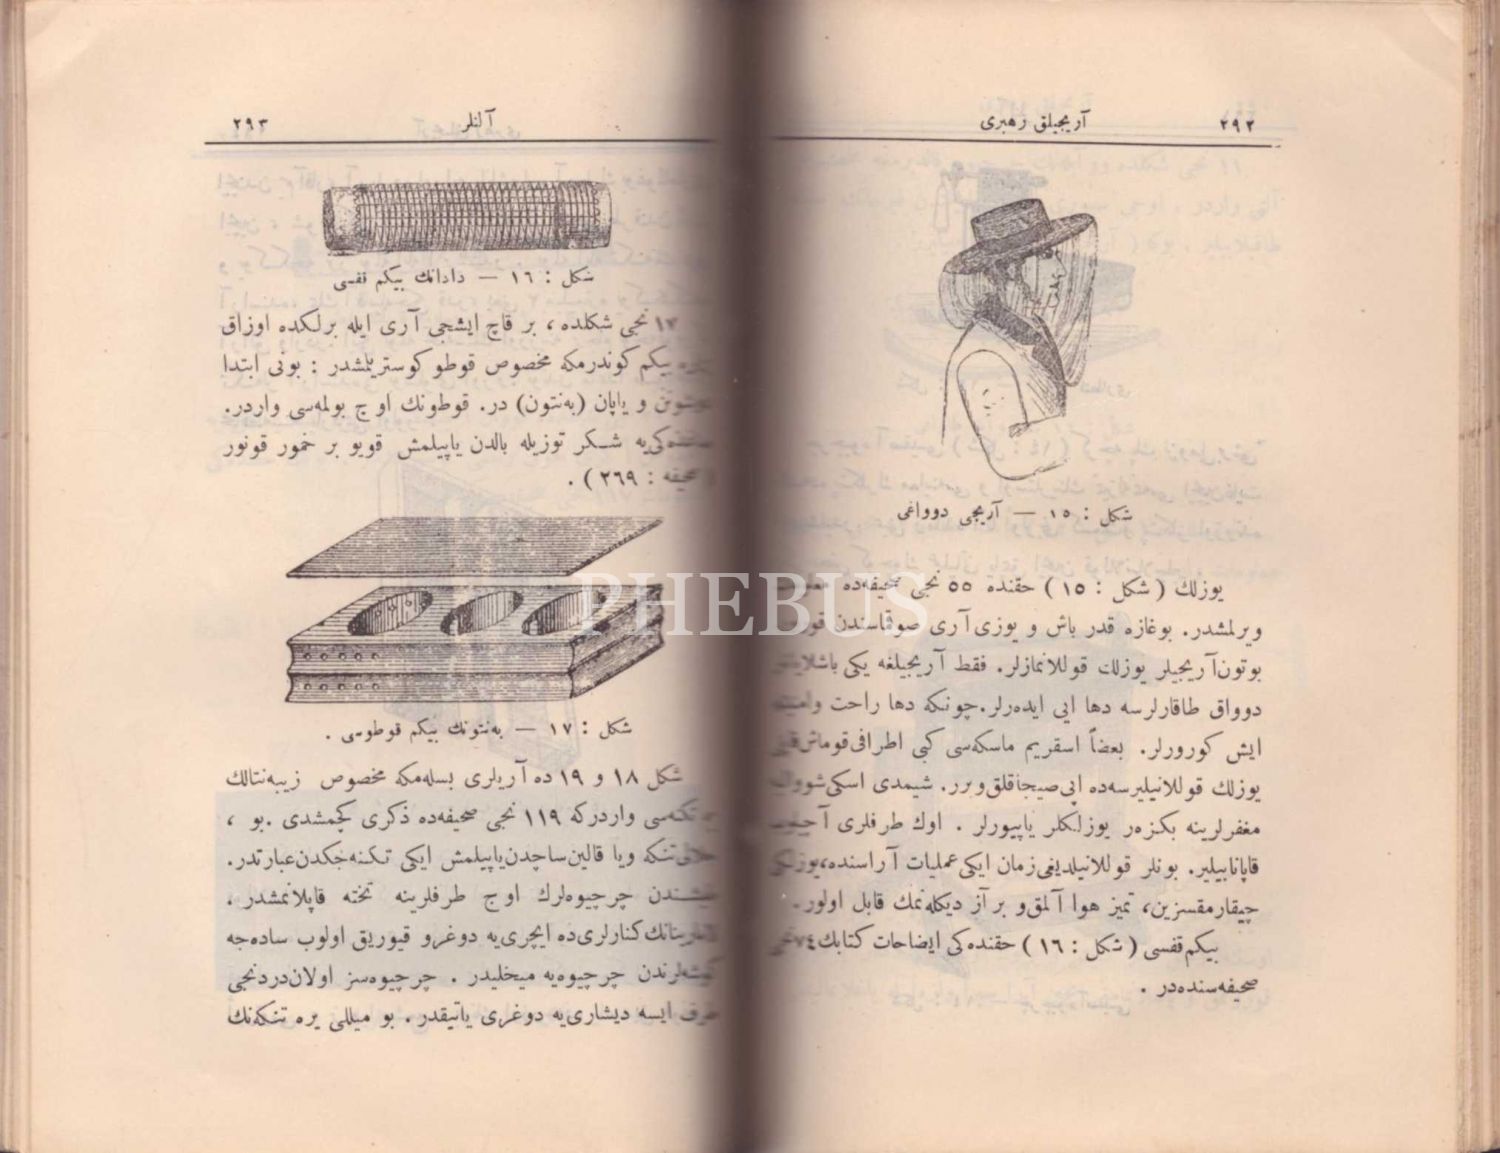 ٢٩٢
آریجیلق رهبری
شکل : ١٥ — آریجی دوواغی
یوزلك ( شکل : ١٥ ) حقنده ٥٥ نجی صحیفه‌ده
ویرلمشدر. بوغازه قدر باش و یوزی آری صوقماسندن
بوتون آریجیلر یوزلك قوللانمازلر. فقط آریجیلغه یکی
دوواق طاقارلرسه دها ایی ایده‌رلر. چونکه دها راحت
ایش کورورلر. بعضاً اسقریم ماسکه‌سی کبی اطرافی قوماش
یوزلك قوللانیلیرسه‌ده اپی صیجاقلق ویرر. شیمدی اسکی
مغفرلرینه بکزه‌ر یوزلکلر یاپیورلر . اوك طرفلری
قاپانابیلیر. بونلر قوللانیلدیغی زمان ایکی عملیات آراسنده،
چیقارمقسزین، تمیز هوا آلمق و بر آز دیکله‌نمك قابل اولور.
بیکم قفسی ( شکل : ١٦ ) حقنده‌کی ایضاحات کتابك ٧٤
صحیفه‌سنده‌در .
آلتلر
٢٩٣
شکل : ١٦ — دادانك بیکم قفسی
١٧ نجی شکلده ، بر قاچ ایشجی آری ایله برلکده اوزاق
بیکم کوندرمکه مخصوص قوطو کوستریلمشدر : بونی ابتدا
و یاپان (به‌نتون) در. قوطونك اوچ بولمه‌سی واردر.
شکر توزیله بالدن یاپیلمش قویو بر خمور قونور
صحیفه : ٢٦٩ ) .
شکل : ١٧ — به‌نتونك بیکم قوطوسی .
شکل ١٨ و ١٩ ده آریلری بسله‌مکه مخصوص زیبه‌نتالك
واردرکه ١١٩ نجی صحیفه‌ده ذکری کچمشدی . بو ،
تنکه ویا قالین ساچدن یاپیلمش ایکی تکنه‌جکدن عبارتدر.
چرچیوه‌لرك اوچ طرفلرینه تخته قاپلانمشدر .
کنارلری‌ده ایچری‌یه دوغرو قیوریق اولوب ساده‌جه
چرچیوه‌یه میخلیدر . چرچیوه‌سز اولان دردنجی
طرف ایسه دیشاری‌یه دوغری یاتیقدر . بو میللی یره تنکه‌نك
PHEBUS